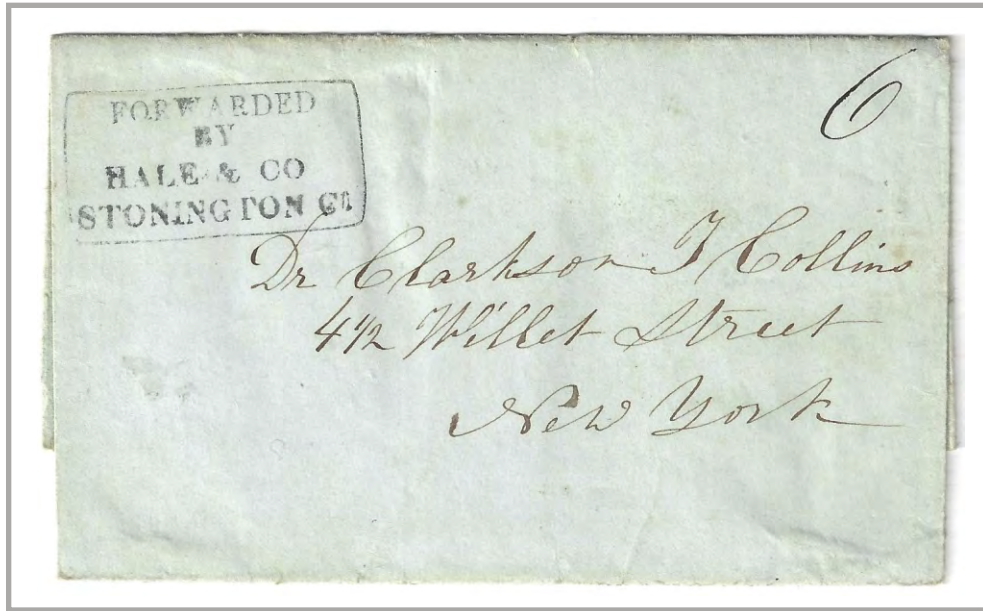 FORWARDED
BY
HALE & CO
STONINGTON Ct
6
Dr Clarkson T Collins
4½ Willet Street
New York